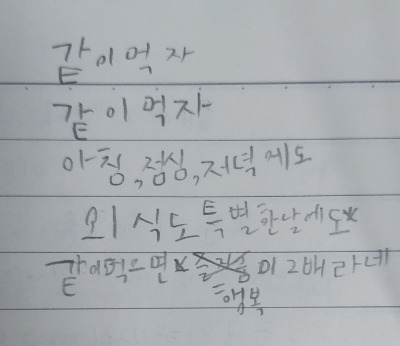 같이먹자
같이먹자
아침,점심,저녁에도
외식도 특별한날에도*
같이먹으면* 이 2배라네
행복